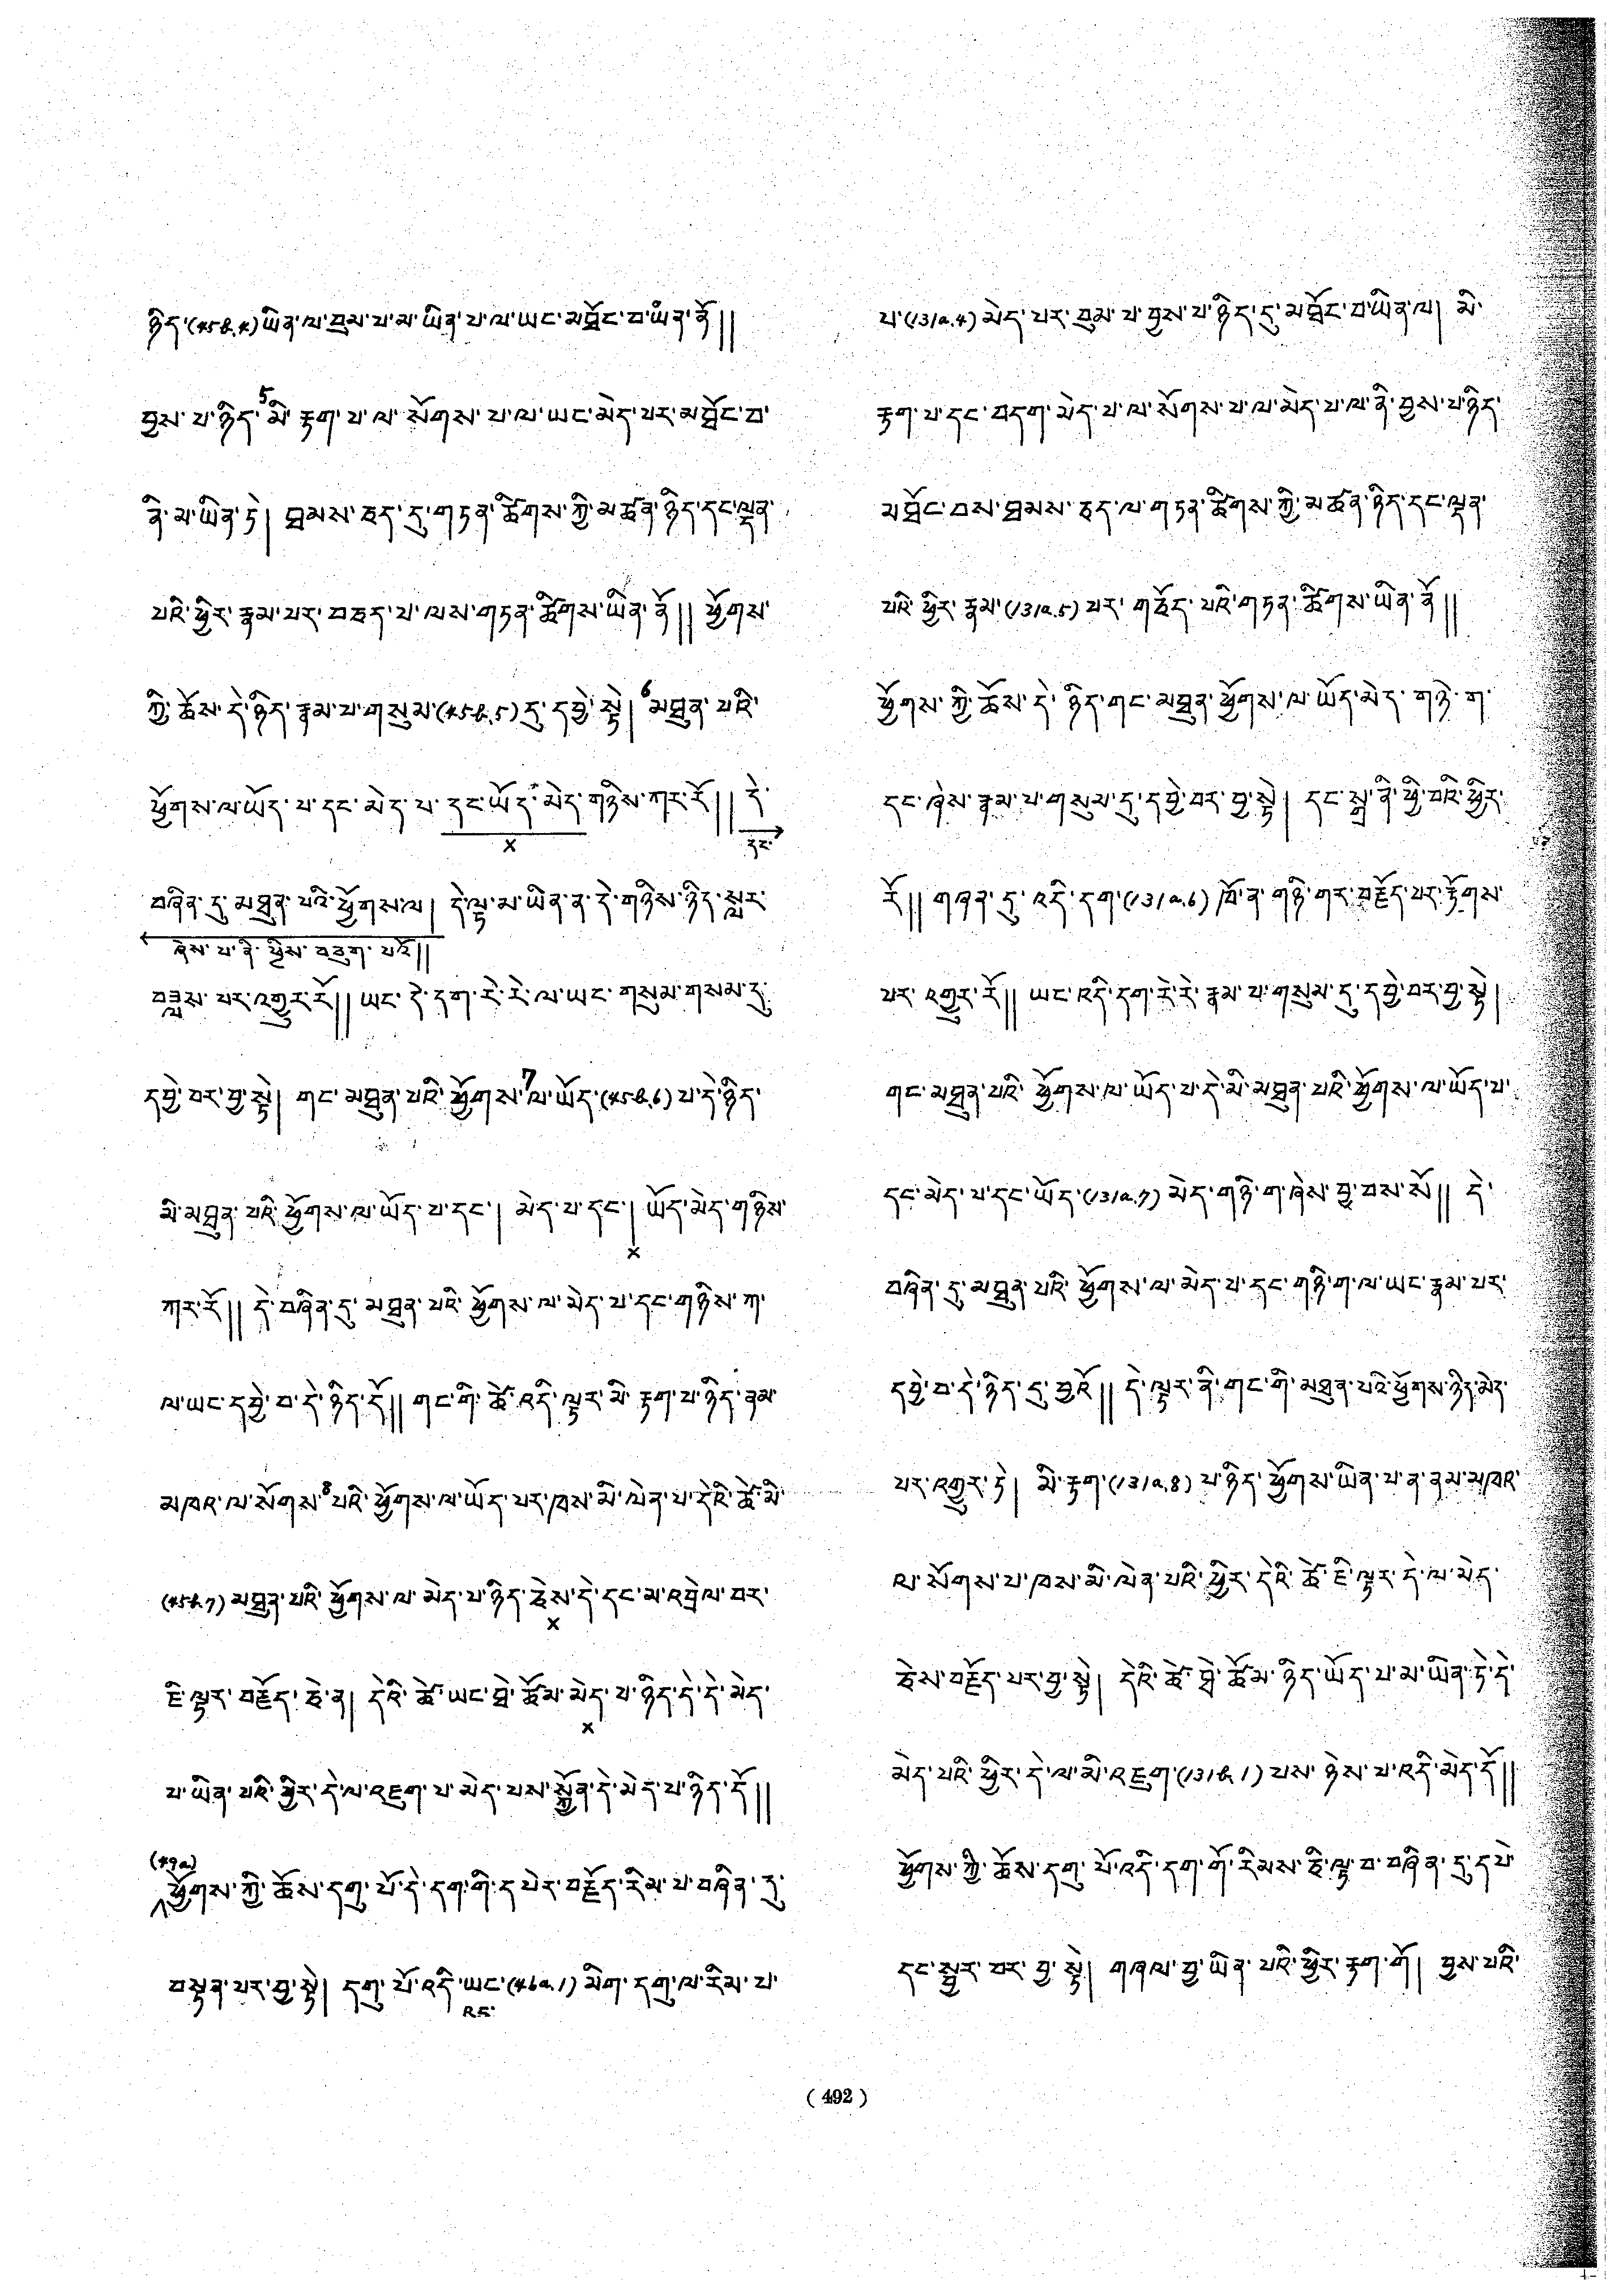 ཉིད་(45b.4)ཡིན་ལ་བུམ་པ་མ་ཡིན་པ་ལ་ཡང་མཐོང་བ་ཡིན་ནོ༎
བྱས་པ་ཉིད་5མི་རྟག་པ་ལ་སོགས་པ་ལ་ཡང་མེད་པར་མཐོང་བ་
ནི་མ་ཡིན་ཏེ། ཐམས་ཅད་དུ་གཏན་ཚིགས་ཀྱི་མཚན་ཉིད་དང་ལྡན་
པའི་ཕྱིར་རྣམ་པར་བཅད་པ་ལས་གཏན་ཚིགས་ཡིན་ནོ༎ ཕྱོགས་
ཀྱི་ཆོས་དེ་ཉིད་རྣམ་པ་གསུམ་(45b.5)དུ་དབྱེ་སྟེ།6མཐུན་པའི་
ཕྱོགས་ལ་ཡོད་པ་དང་མེད་པ་དང་ཡོད་མེད་གཉིས་ཀར་རོ༎ དེ་
x དང་
བཞིན་དུ་མཐུན་པའི་ཕྱོགས་ལ། དེ་ལྟ་མ་ཡིན་ན་དེ་གཉིས་ཉིད་སླར་
ཞེས་པ་ནི་ཕྱིས་བཅུག་པའོ༎
བཟླས་པར་འགྱུར་རོ༎ ཡང་དེ་དག་རེ་རེ་ལ་ཡང་གསུམ་གསམ་དུ་
དབྱེ་བར་བྱ་སྟེ། གང་མཐུན་པའི་ཕྱོགས་7ལ་ཡོད་(45b.6)པ་དེ་ཉིད་
མི་མཐུན་པའི་ཕྱོགས་ལ་ཡོད་པ་དང་། མེད་པ་དང་། ཡོད་མེད་གཉིས་
x
ཀར་རོ༎ དེ་བཞིན་དུ་མཐུན་པའི་ཕྱོགས་ལ་མེད་པ་དང་གཉིས་ཀ་
ལ་ཡང་དབྱེ་བ་དེ་ཉིད་དོ༎ གང་གི་ཚེ་འདི་ལྟར་མི་རྟག་པ་ཉིད་ནམ་
མཁའ་ལ་སོགས་8པའི་ཕྱོགས་ལ་ཡོད་པར་ཁས་མི་ལེན་པ་དེའི་ཚེ་མི་
(45b.7)མཐུན་པའི་ཕྱོགས་ལ་མེད་པ་ཉིད་ཅེས་དེ་དང་མ་འབྲེལ་བར་
x
ཇི་ལྟར་བརྗོད་ཅེ་ན། དེའི་ཚེ་ཡང་ཐེ་ཚོམ་མེད་པ་ཉིད་དེ་དེ་མེད་
x
པ་ཡིན་པའི་ཕྱིར་དེ་ལ་འཇུག་པ་མེད་པས་སྐྱོན་དེ་མེད་པ་ཉིད་དོ༎
(49a)
ཕྱོགས་ཀྱི་ཆོས་དགུ་པོ་དེ་དག་གི་དཔེར་བརྗོད་རིམ་པ་བཞིན་དུ་
བསྟན་པར་བྱ་སྟེ། དགུ་པོ་འདི་ཡང་(46a.1)མིག་དགུ་ལ་རིམ་པ་
འང་
པ་(131a.4)མེད་པར་བུམ་པ་བྱས་པ་ཉིད་དུ་མཐོང་བ་ཡིན་ལ། མི་
རྟག་པ་དང་བདག་མེད་པ་ལ་སོགས་པ་ལ་མེད་པ་ལ་ནི་བྱས་པ་ཉིད་
མཐོང་བས་ཐམས་ཅད་ལ་གཏན་ཚིགས་ཀྱི་མཚན་ཉིད་དང་ལྡན་
པའི་ཕྱིར་རྣམ་(131a.5)པར་གཅོད་པའི་གཏན་ཚིགས་ཡིན་ནོ༎
ཕྱོགས་ཀྱི་ཆོས་དེ་ཉིད་གང་མཐུན་ཕྱོགས་ལ་ཡོད་མེད་གཉི་ག་
དང་ཞེས་རྣམ་པ་གསུམ་དུ་དབྱེ་བར་བྱ་སྟེ། དང་སྒྲ་ནི་ཕྱི་བའི་ཕྱིར་
རོ༎ གཞན་དུ་འདི་དག་(131a.6)ཁོ་ན་གཉི་གར་བརྗོད་པར་རྟོགས་
པར་འགྱུར་རོ༎ ཡང་འདི་དག་རེ་རེ་རྣམ་པ་གསུམ་དུ་དབྱེ་བར་བྱ་སྟེ།
གང་མཐུན་པའི་ཕྱོགས་ལ་ཡོད་པ་དེ་མི་མཐུན་པའི་ཕྱོགས་ལ་ཡོད་པ་
དང་མེད་པ་དང་ཡོད་(131a.7)མེད་གཉི་ག་ཞེས་བྱ་བས་སོ༎ དེ་
བཞིན་དུ་མཐུན་པའི་ཕྱོགས་ལ་མེད་པ་དང་གཉི་ག་ལ་ཡང་རྣམ་པར་
དབྱེ་བ་དེ་ཉིད་དུ་བྱའོ༎ དེ་ལྟར་ནི་གང་གི་མཐུན་པའི་ཕྱོགས་ཉིད་མེད་
པར་འགྱུར་ཏེ། མི་རྟག་(131a.8)པ་ཉིད་ཕྱོགས་ཡིན་པ་ན་ནམ་མཁའ་
ལ་སོགས་པ་ཁས་མི་ལེན་པའི་ཕྱིར་དེའི་ཚེ་ཇི་ལྟར་དེ་ལ་མེད་
ཅེས་བརྗོད་པར་བྱ་སྟེ། དེའི་ཚེ་ཐེ་ཚོམ་ཉིད་ཡོད་པ་མ་ཡིན་ཏེ་དེ་
མེད་པའི་ཕྱིར་དེ་ལ་མི་འཇུག་(131b.1)པས་ཉེས་པ་འདི་མེད་དོ༎
ཕྱོགས་ཀྱི་ཆོས་དགུ་པོ་འདི་དག་གོ་རིམས་ཇི་ལྟ་བ་བཞིན་དུ་དཔེ་
དང་སྦྱར་བར་བྱ་སྟེ། གཞལ་བྱ་ཡིན་པའི་ཕྱིར་རྟག་གོ། བྱས་པའི་
(492)